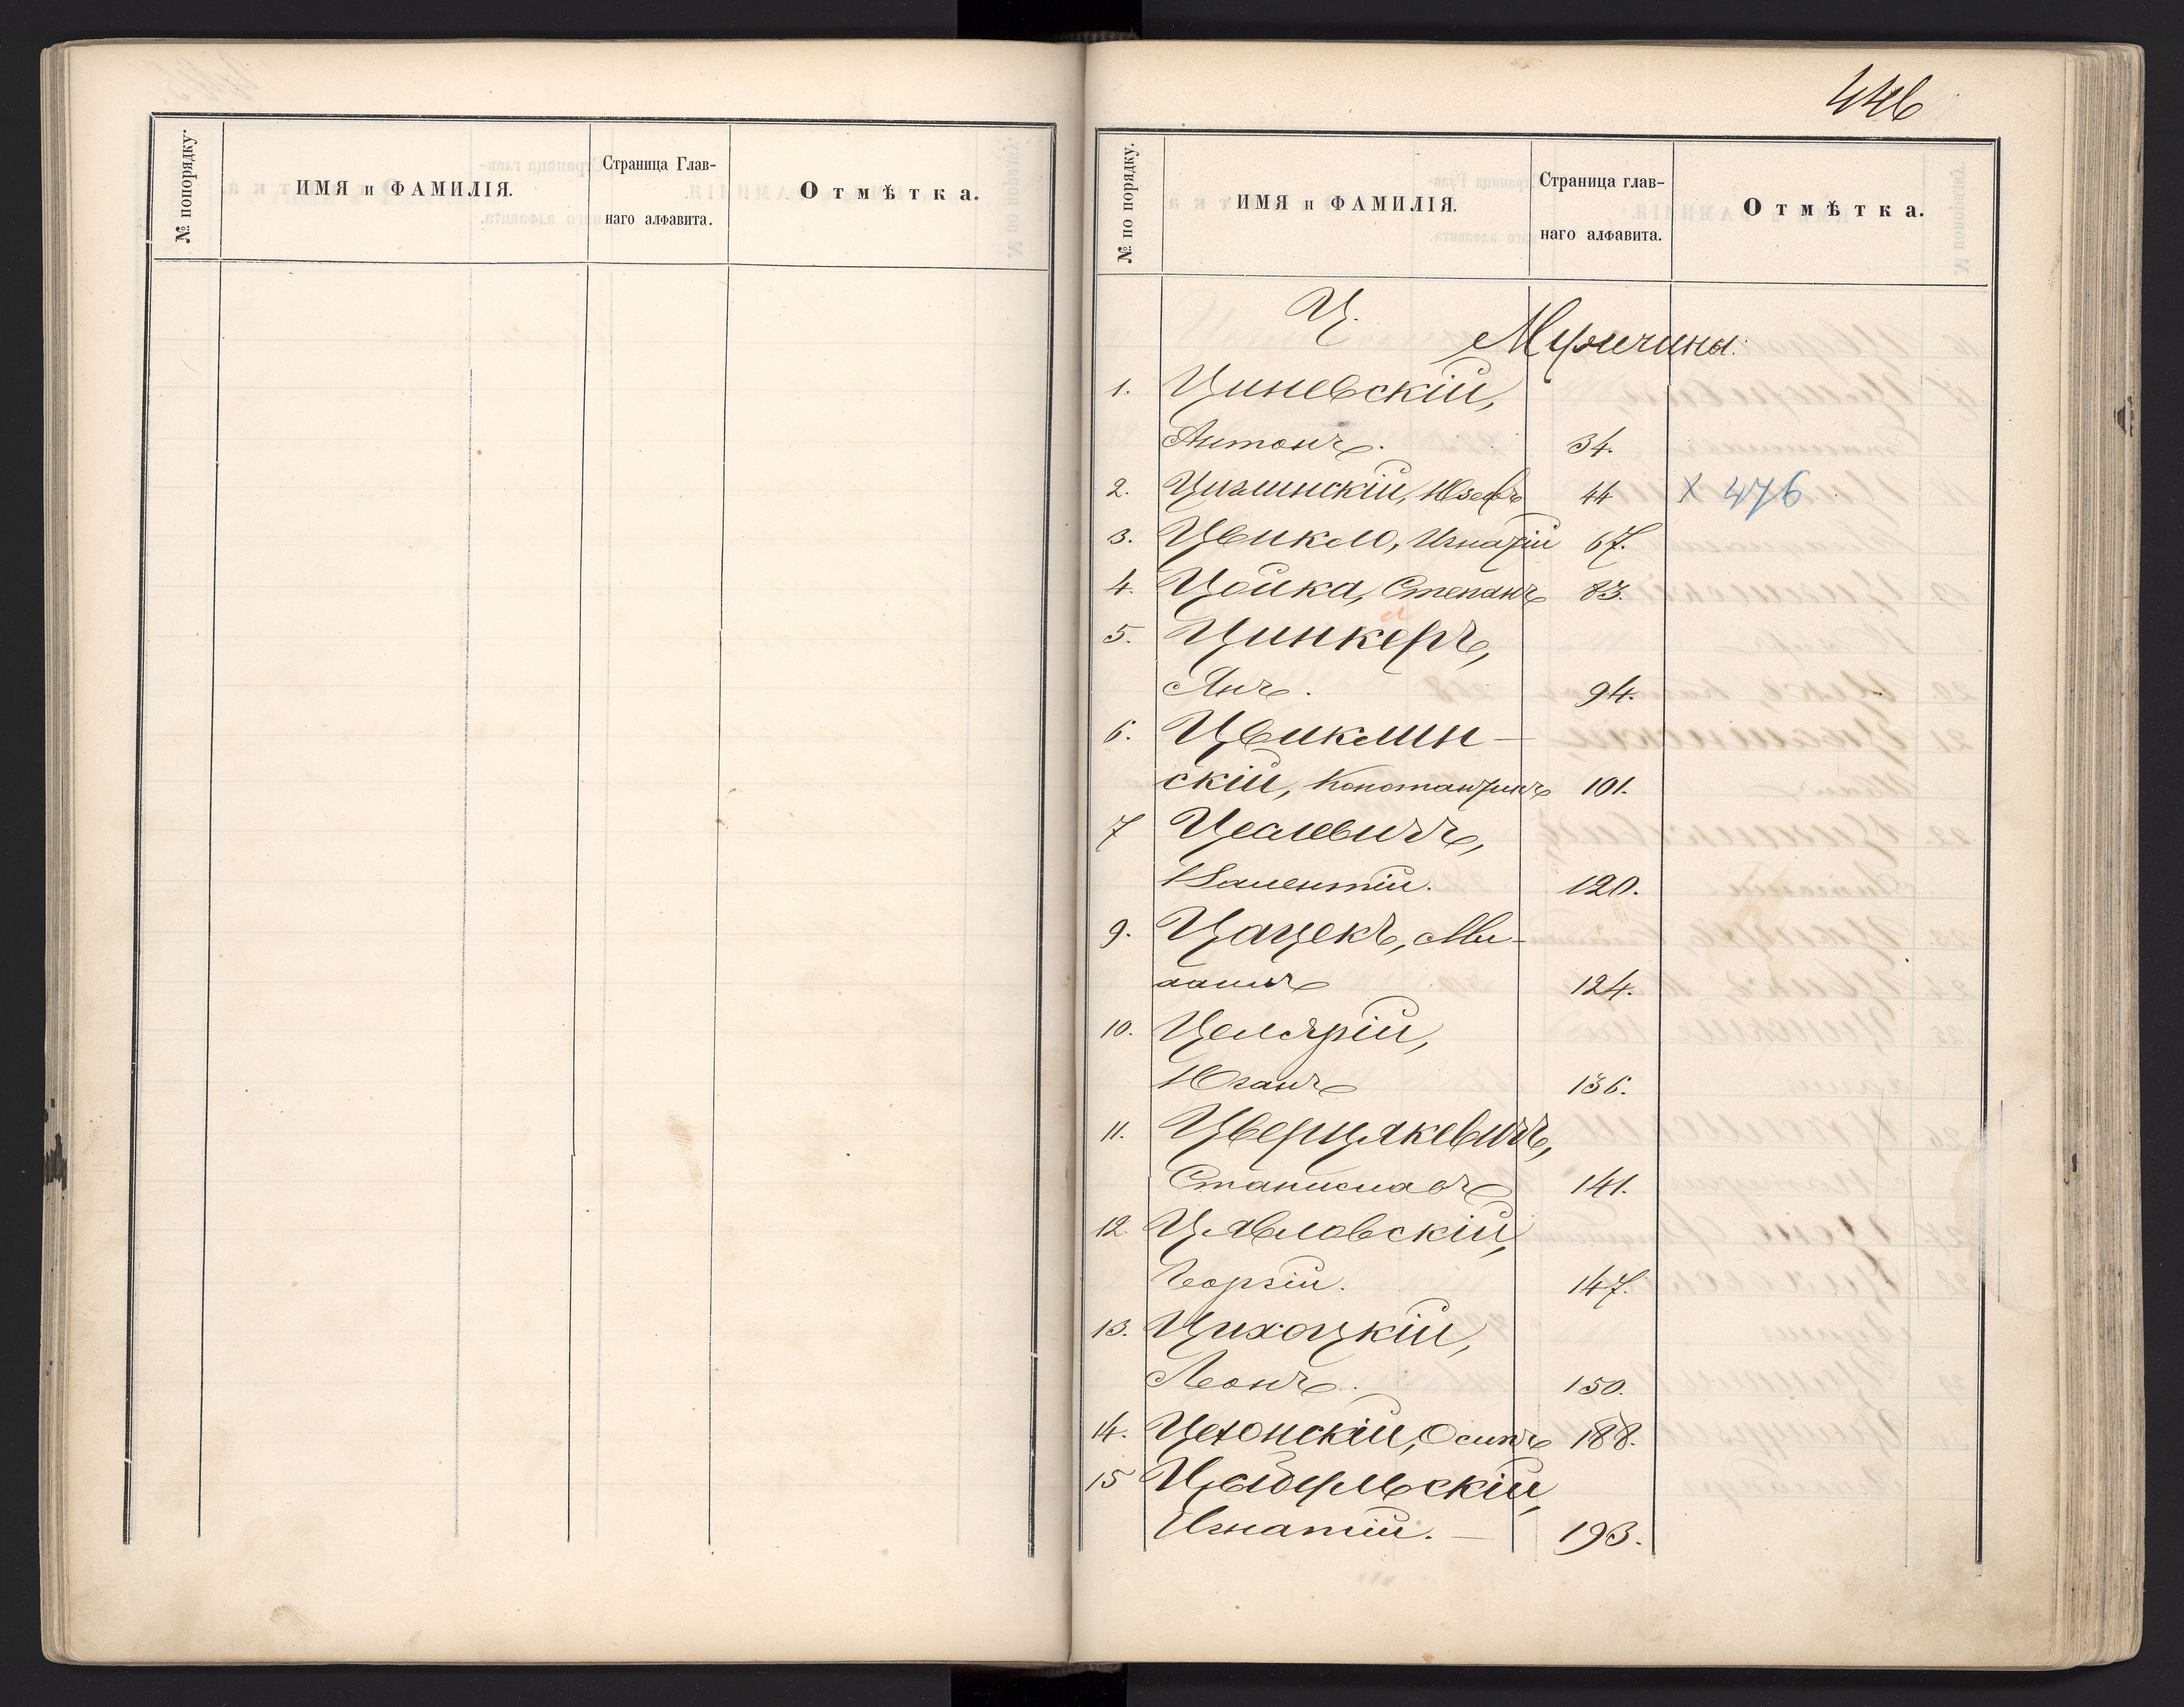 № попорядку.
ИМЯ и ФАМИЛІЯ.
Страница Глав-
наго алфавита.
Отмѣтка.
446
№ по порядку.
ИМЯ и ФАМИЛІЯ.
Страница глав-
наго алфавита.
Отмѣтка.
Ц.
Мужчины.
1. Циневскій,
Антонъ. 34.
2. Циглинскій, Юзефъ 44 X 476
3. Цвикло, Игнатій 67.
4. Цойка, Степанъ 83.
5. Цинкеръ,
Янъ. 94.
6. Цвиклин-
скій, Константинъ 101.
7 Цеалевичъ,
Валентій. 120.
9. Цацекъ, Ми-
124.
10. Целярій,
Юганъ 136.
11. Цверцякевичъ,
Станиславъ 141.
12. Цявловскій,
Георгій. 147.
13. Цихоцкій,
Леонъ. 150.
14. Цехонскій, Осипъ 188.
15
Игнатій. 193.